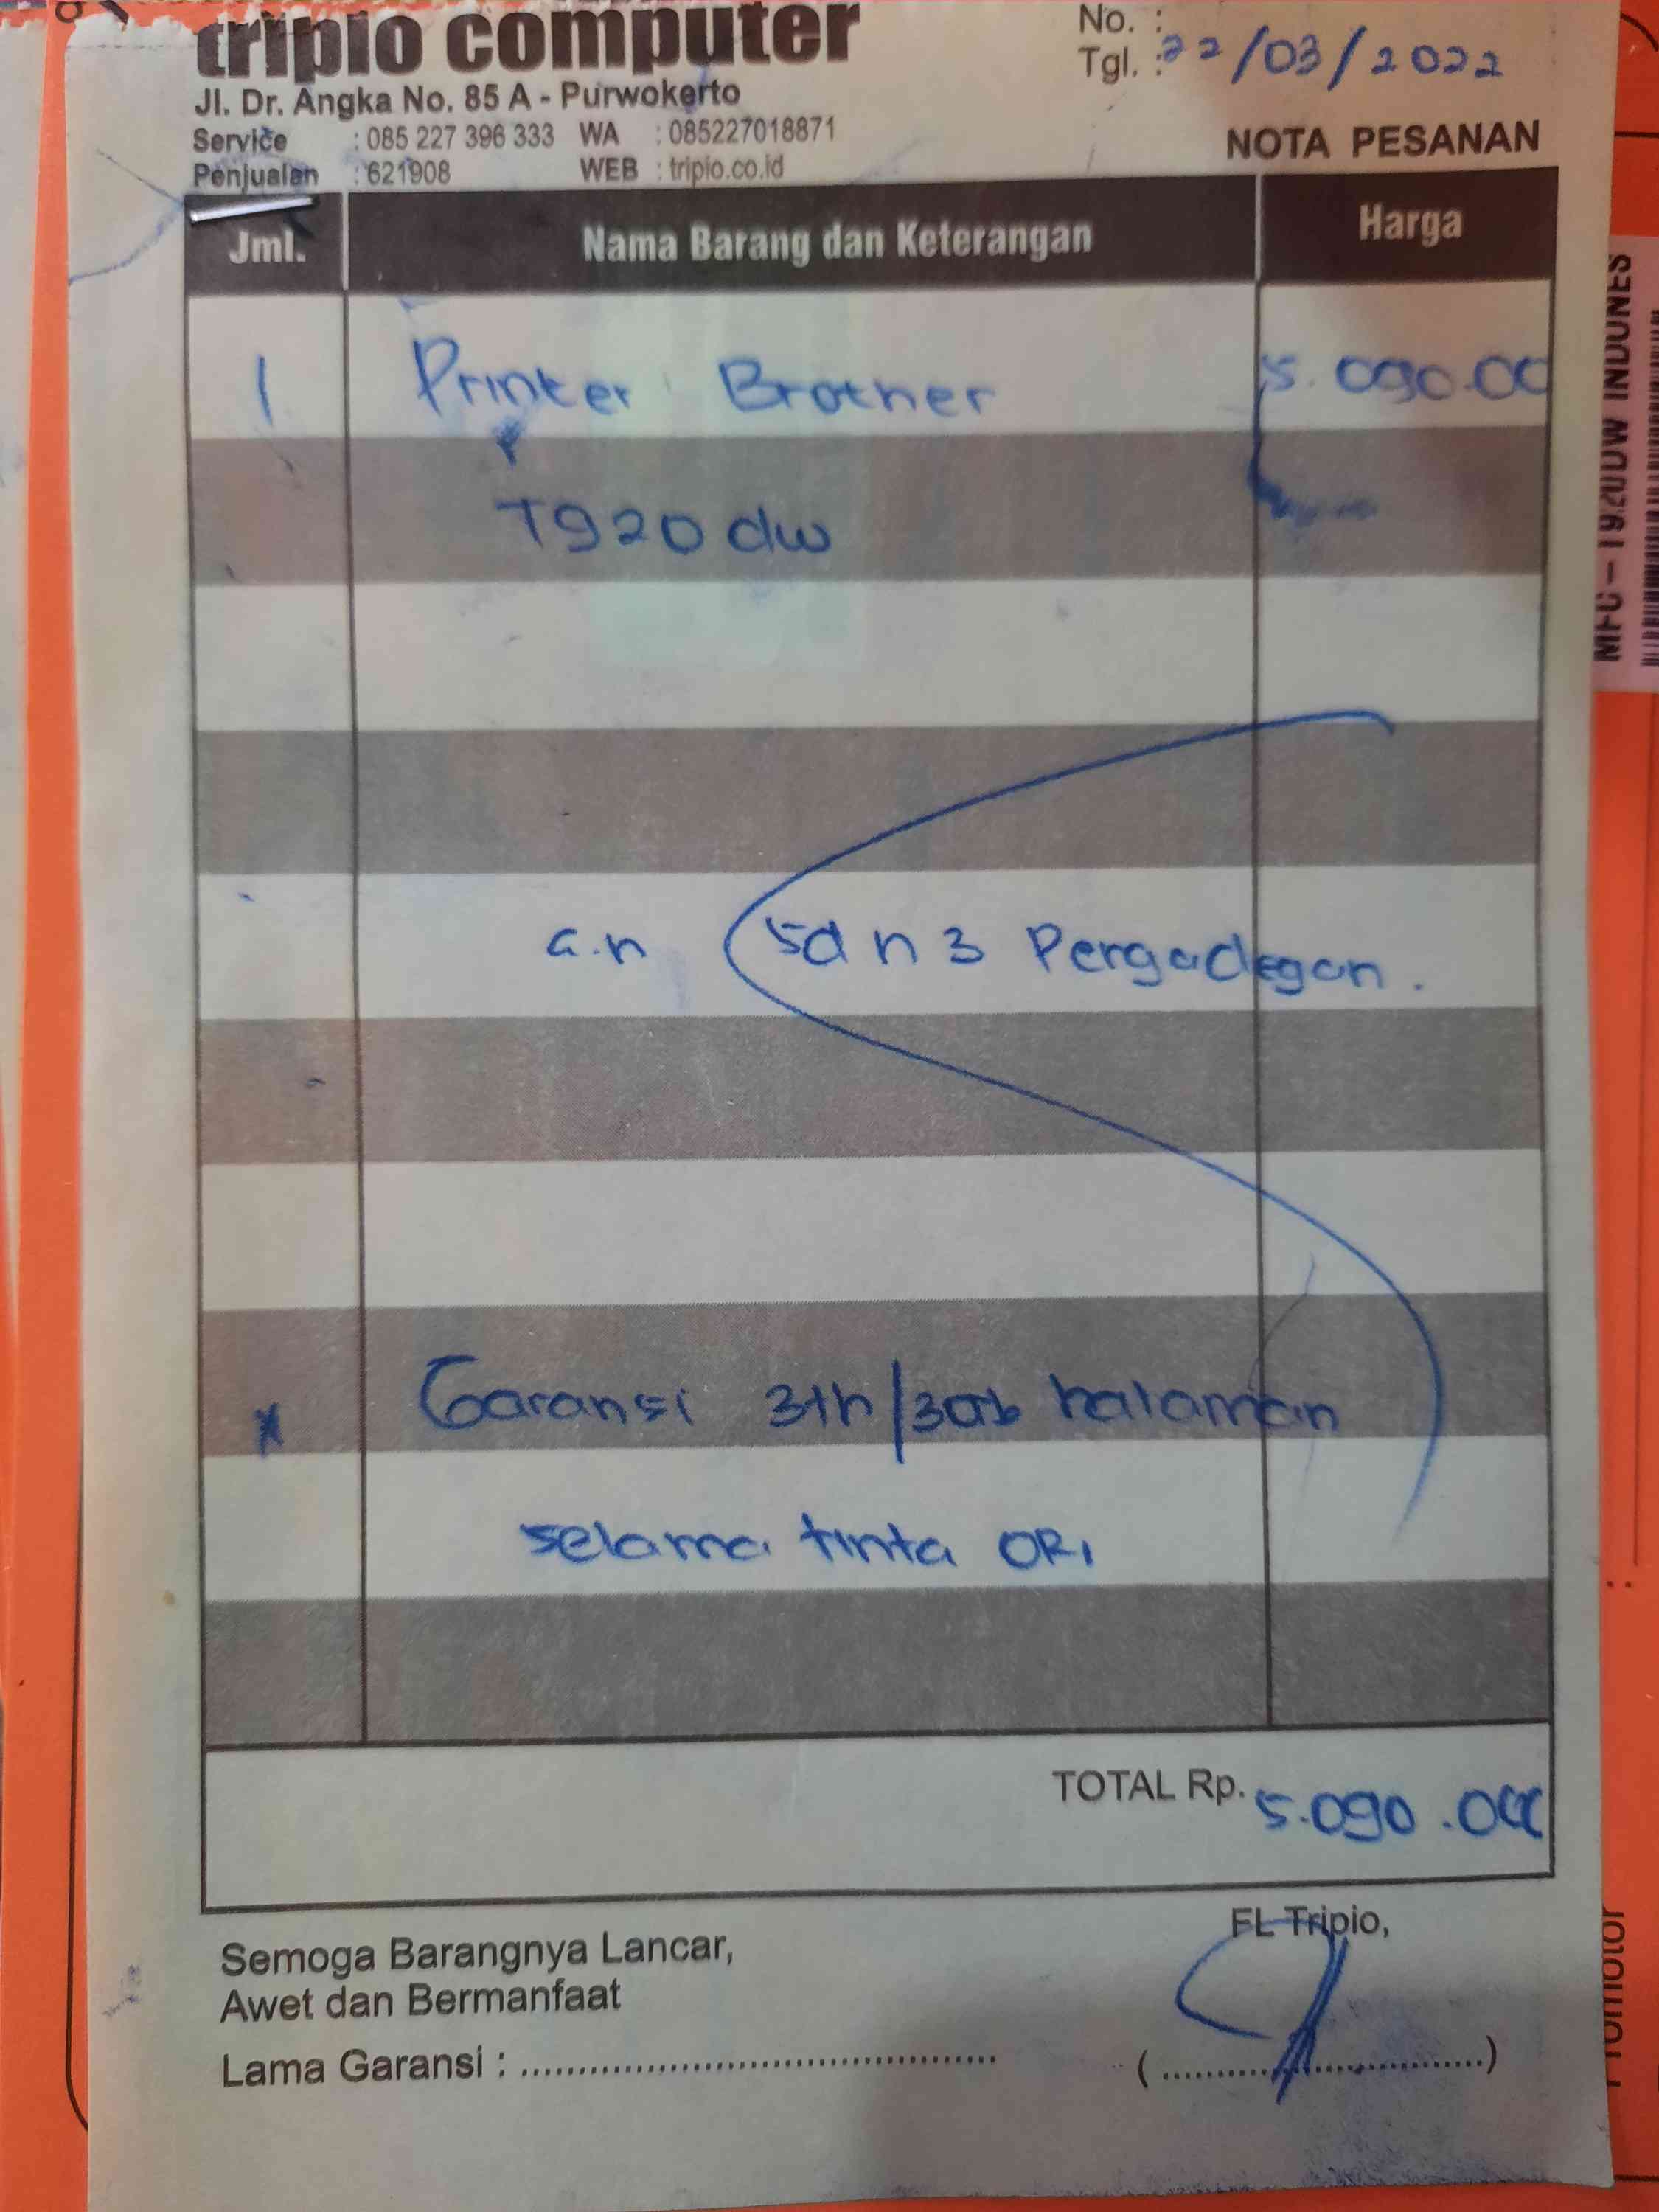 tripio computer
No. :
Tgl. : 22/03/2022
Jl. Dr. Angka No. 85 A - Purwokerto
Service : 085 227 396 333 WA : 085227018871
Penjualan : 621908 WEB : tripio.co.id
NOTA PESANAN
Jml. Nama Barang dan Keterangan Harga
1 Printer Brother 5.090.00
T920 dw
a.n sd n 3 Pergadegan.
* Garansi 3th/30rb halaman
selama tinta ORI
TOTAL Rp. 5.090.000
Semoga Barangnya Lancar,
Awet dan Bermanfaat
FL Tripio,
Lama Garansi : ..........................................
(..............................)
MFC-T920DW INDONES
Promotor